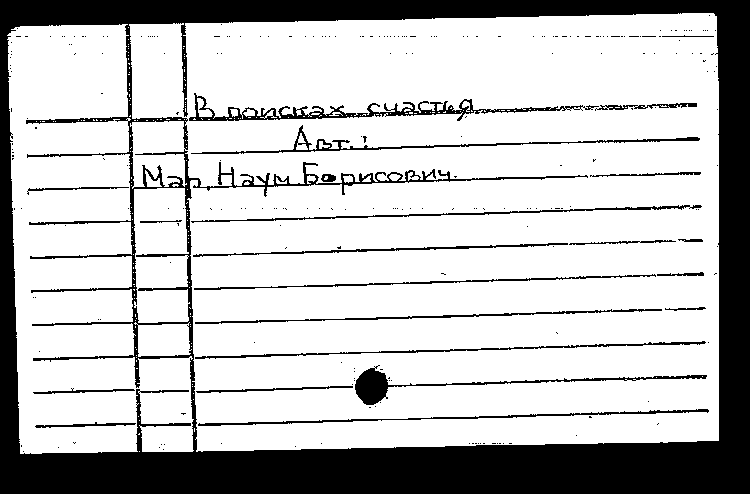 В поисках счастья
Авт.:
Мар, Наум Борисович.